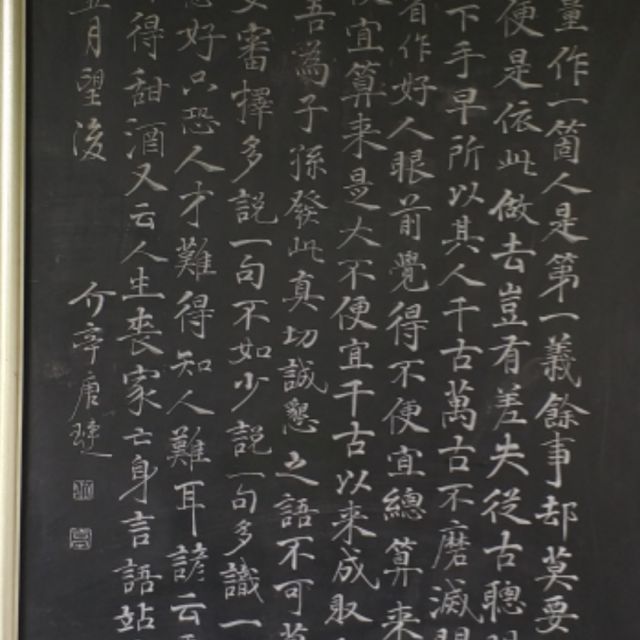 量作一箇人是第一義餘事却莫要
便是依此做去豈有差失從古聰
下手早所以其人千古萬古不磨滅
有作好人眼前覺得不便宜總算来
便宜算来是大不便宜千古以来成敗
吾為子孫發此真切誠懇之語不可
要審擇多説一句不如少説一句多識一
好只恐人才難得知人難耳諺云
得甜酒又云人生喪家亡身言語站
五月望後
介亭唐